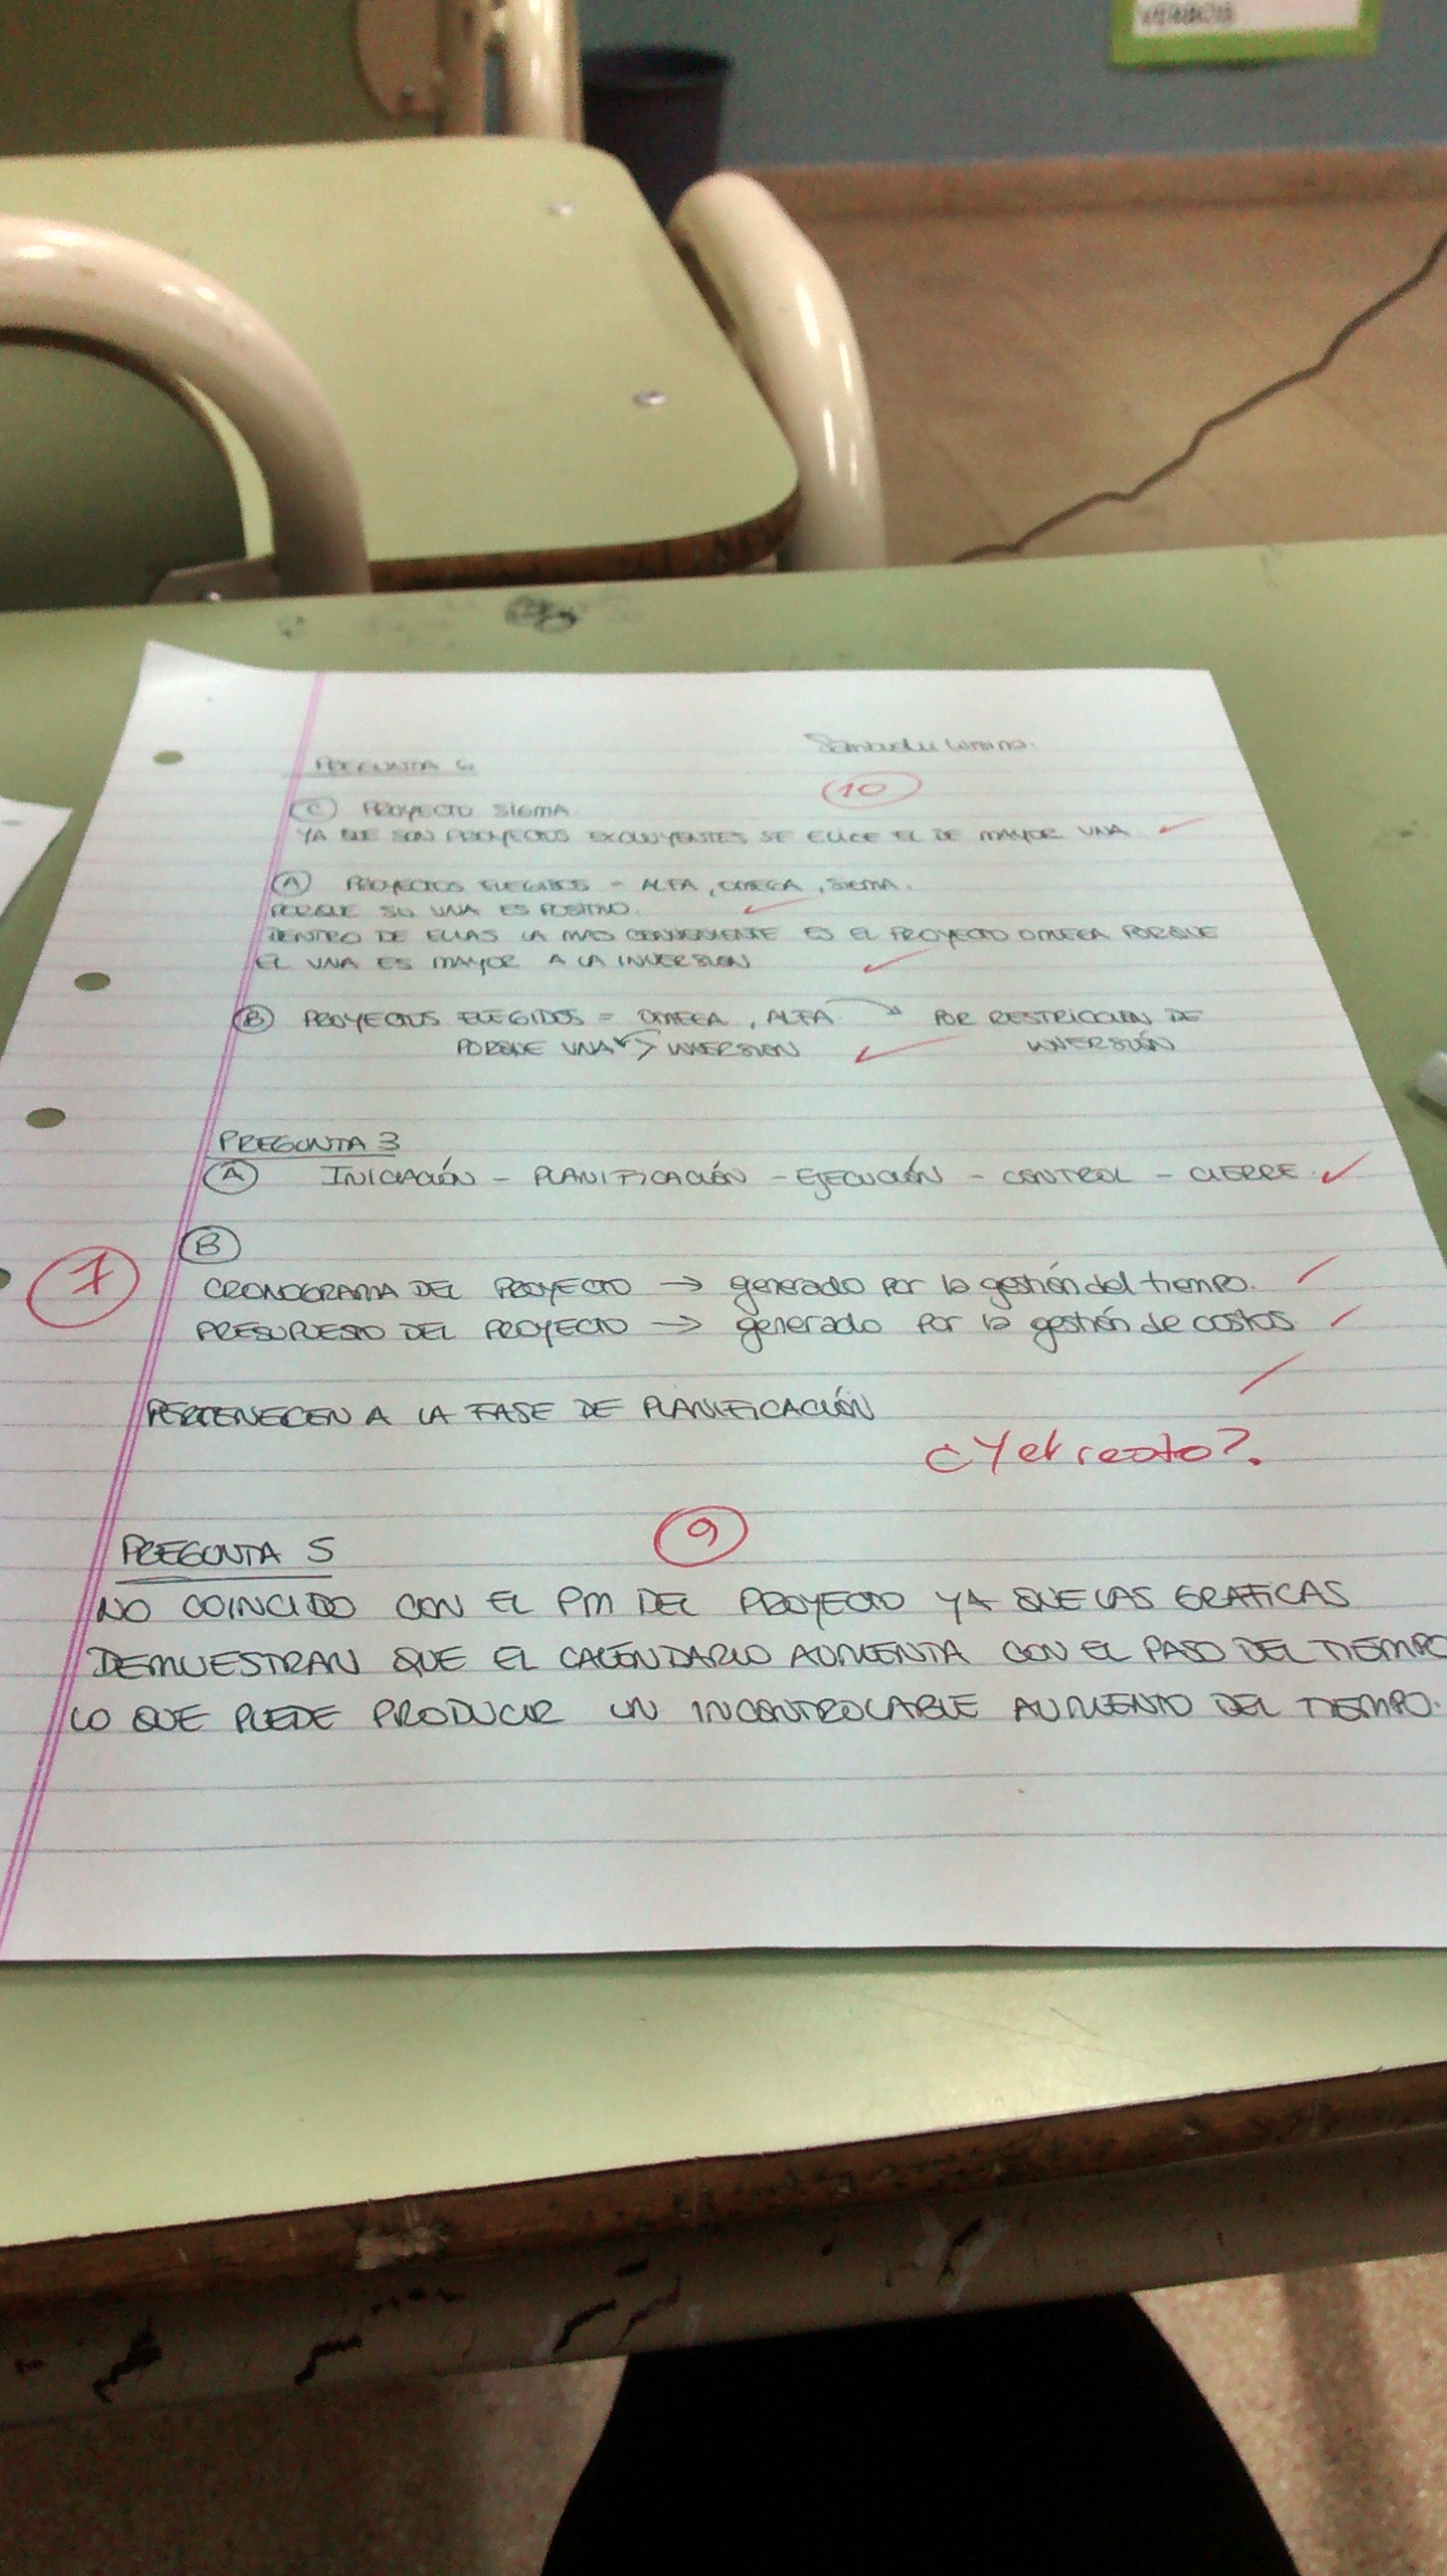 PREGUNTA 6
10
C PROYECTO SIGMA
YA QUE SON PROYECTOS EXCLUYENTES SE ELIGE EL DE MAYOR VNA
A PROYECTOS ELEGIDOS = ALFA, OMEGA, SIGMA.
PORQUE SU VNA ES POSITIVO.
DENTRO DE ELLAS LA MAS CONVENIENTE ES EL PROYECTO OMEGA PORQUE
EL VNA ES MAYOR A LA INVERSION
B PROYECTOS ELEGIDOS = OMEGA, ALFA → POR RESTRICCION DE INVERSIÓN
PORQUE VNA > INVERSION
PREGUNTA 3
A INICIACIÓN - PLANIFICACIÓN - EJECUCIÓN - CONTROL - CIERRE.
7
B
CRONOGRAMA DEL PROYECTO → generado por la gestión del tiempo.
PRESUPUESTO DEL PROYECTO → generado por la gestión de costos
PERTENECEN A LA FASE DE PLANIFICACIÓN
¿Y el resto?.
PREGUNTA 5
9
NO COINCIDO CON EL PM DEL PROYECTO YA QUE LAS GRAFICAS
DEMUESTRAN QUE EL CALENDARIO AUMENTA CON EL PASO DEL TIEMPO
LO QUE PUEDE PRODUCIR UN INCONTROLABLE AUMENTO DEL TIEMPO.